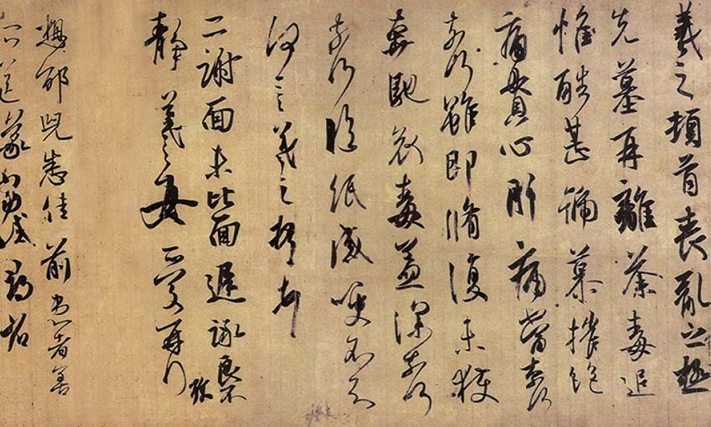 羲之頓首喪亂之極
先墓再離荼毒追
惟酷甚號慕摧絕
痛貫心肝痛當奈何
奈何雖即脩復未獲
奔馳哀毒益深奈何
奈何臨紙感哽不知
何言羲之頓首
二謝面未比面遲詠良不
靜羲之女愛再拜
想邵兒悉佳前患者善
所送議當試尋省